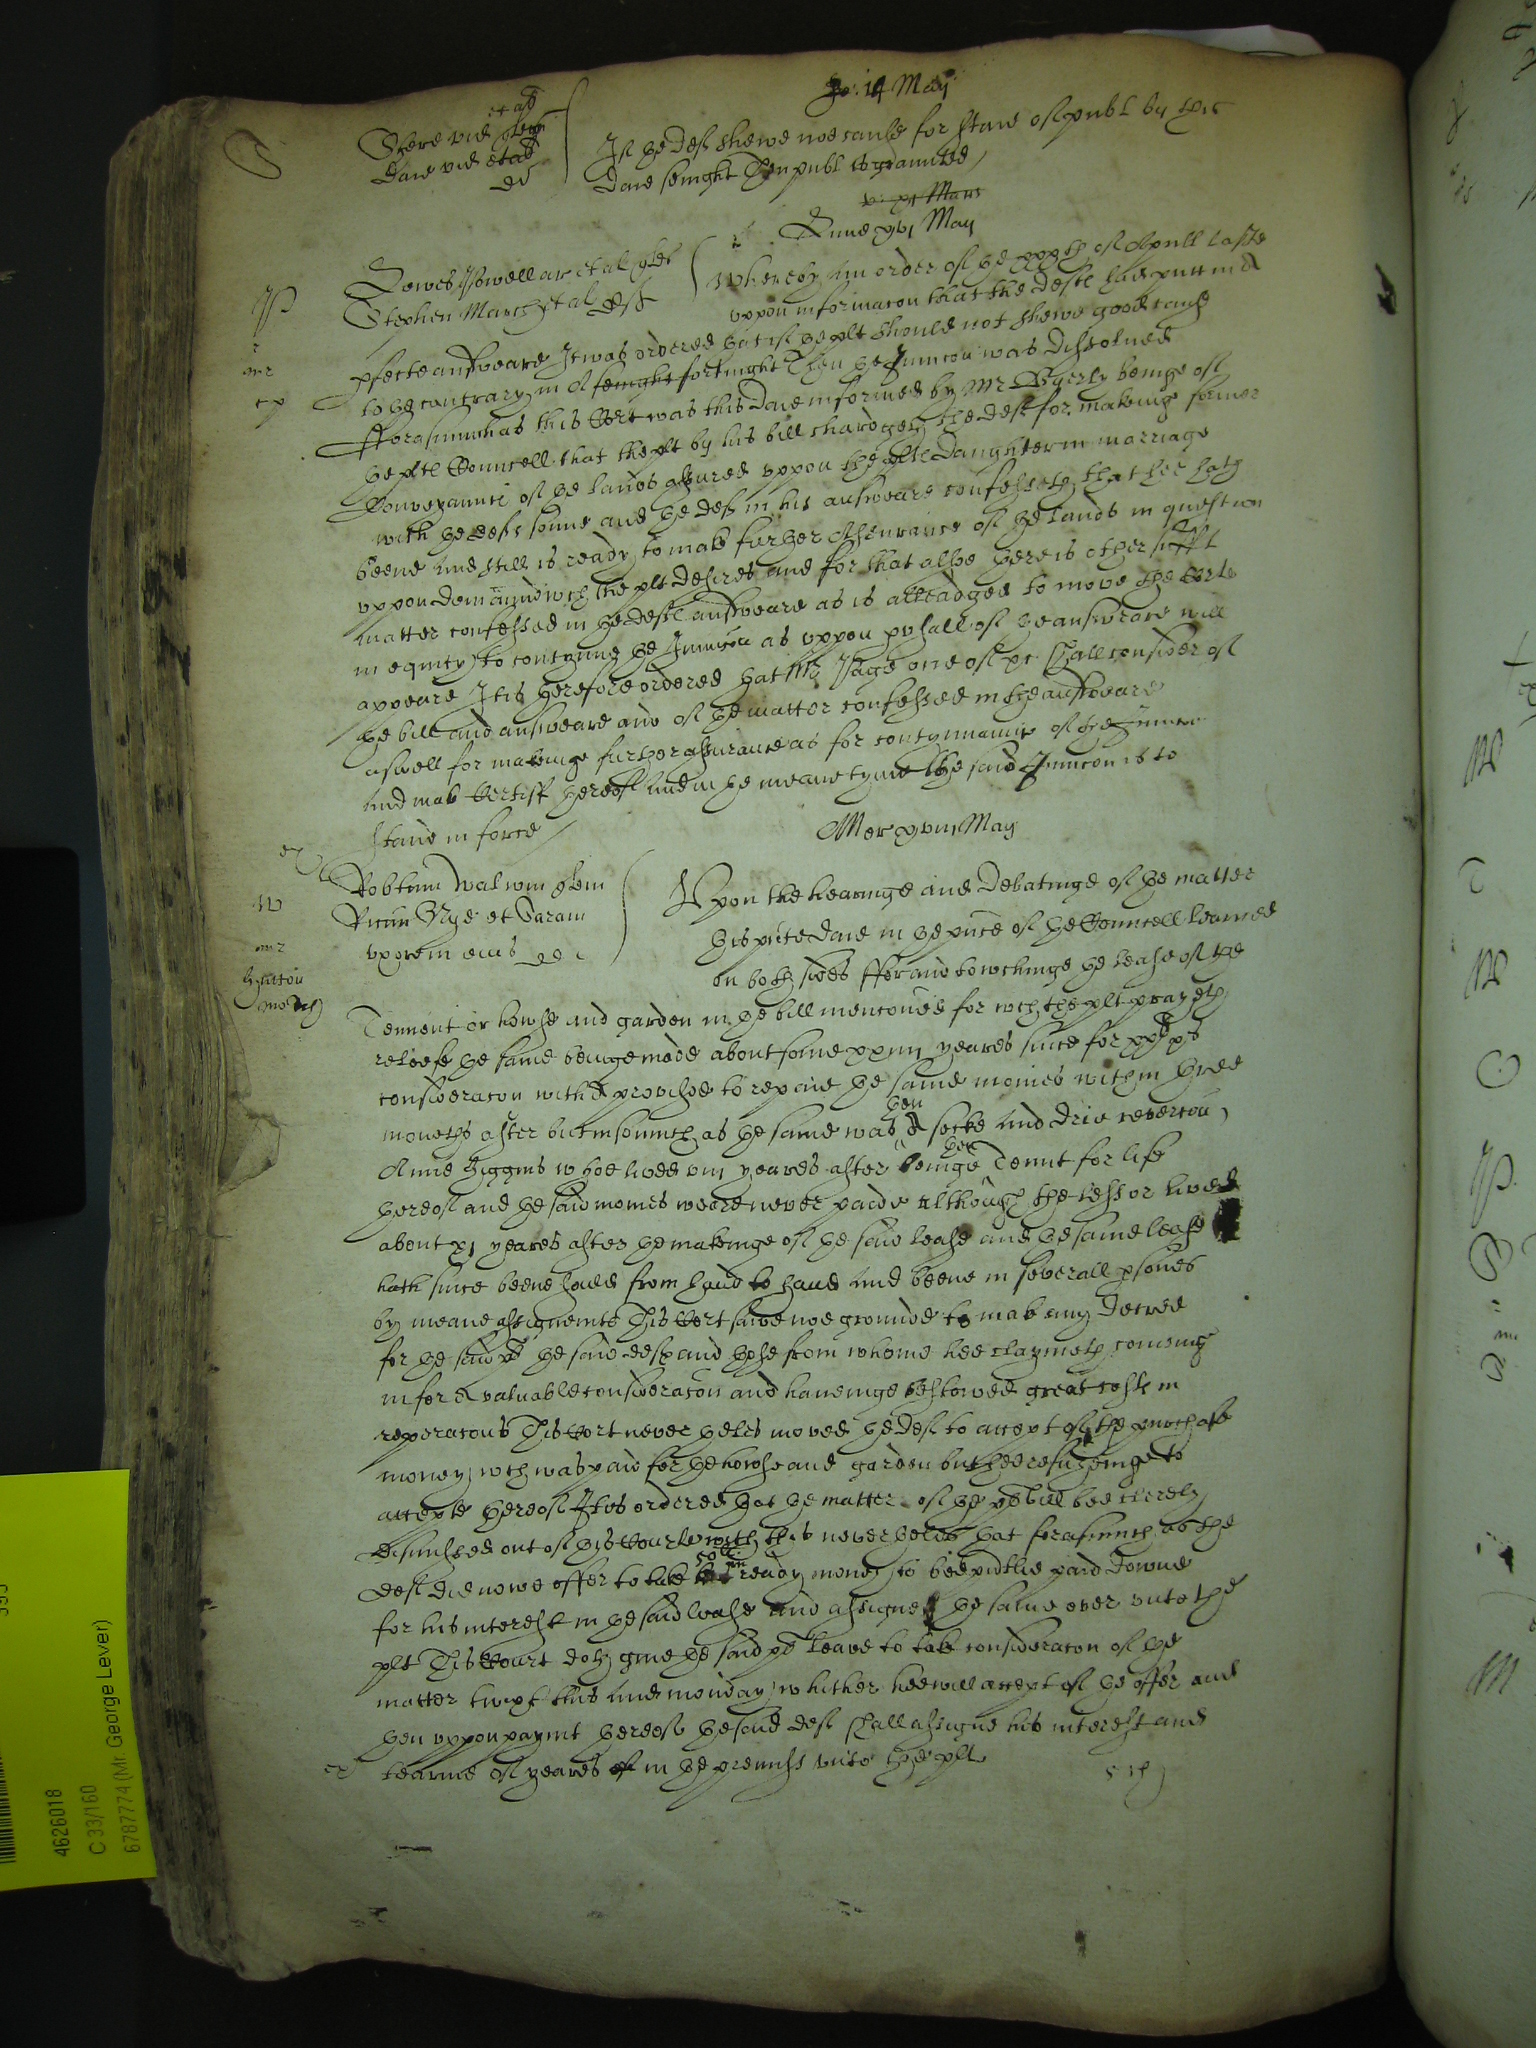 14 May
S
If the deft shewe noe cause for staie of publ by this
daie senight Then publ is graunted
Lune xvi May
P
Lewes Powell ar et al quer
Stephen March et al deft
Whereby an order of the xxxth of Aprill laste
uppon informacon that the deft had putt in a
pfecte answeare It was ordered that if the plt should not shewe good cause
to the contrary in a senight fortnight Then the Iniuncon was dissolued
Fforasmuch as this Cort was this daie informed by Mr beinge of
the pltes Councell that the plt by his bill chardgeth the deft for makinge former
Conveyaunce of the lands assured uppon the pltes daughter in marriage
with the defts sonne and the deft in his answeare confesseth that hee hath
beene and still is ready to make further assurance of the lands in question
uppon demaund wch the plt desires and for that alsoe there is other sufft
matter confessed in the defts answeare as is alleadged to move the Corte
in equity to contynue the Iniuncon as uppon pusall of the answeare will
appeare It is therefore ordered that Mr Page one of &c shall consider of
the bill and answeare and of the matter confessed in the answeare
aswell for makinge further assurance as for contynnance of the Iniuncon
and make Certiff thereof and in the meane tyme the said Iniuncon is to
stand in force
Mer xviii May
W
Robtum Walwin quer
Ricum Nye et Saram
uxorem eius def
Upon the hearinge and debatinge of the matter
this pnte daie in the pnce of the Councell learned
on both sides ffor and towchinge the lease of the
Tenemt or howse and garden in the bill menconed for wch the plt prayeth
releefe the same beinge made about some xxiiii yeares since for
consideracon with a provisoe to repaie the same monies within three
moneths after but insomuch as the same was then a secke and drie revercon
Anne Higgins whoe lived viii yeares after beinge then Tennt for life
thereof and the said monies weare never paide although the lessor lived
about xi yeares after the makinge of the said lease and the same lease
hath since beene sould from hand to hand and beene in severall psones
by meane assignemts This Cort sawe noe grounde to make any Decree
for the said plt the said deft and those from whome hee claymeth cominge
in for a valuable consideracon and haveinge bestowed great costs in
reperacons This Cort never theles moved the deft to accept of the purchase
money wch was paid for the howse and garden but hee refuseinge to
accepte thereof It is ordered that the matter of the plts bill bee cleerely
dismissed out of this Courte with this never theles that forasmuch as the
deft did nowe offer to take ready money to bee pntlie paid downe
for his interest in the said lease and assigne the same over unto the
plt This Court doth give the said plt leave to take consideracon of the
matter twixt this and monday whither hee will accept of the offer and
then uppon paymt thereof the said deft shall assigne his interest and
tearme of yeares in the premiss unto the plt
4626018
C 33/160
6787774 (Mr. George Lever)